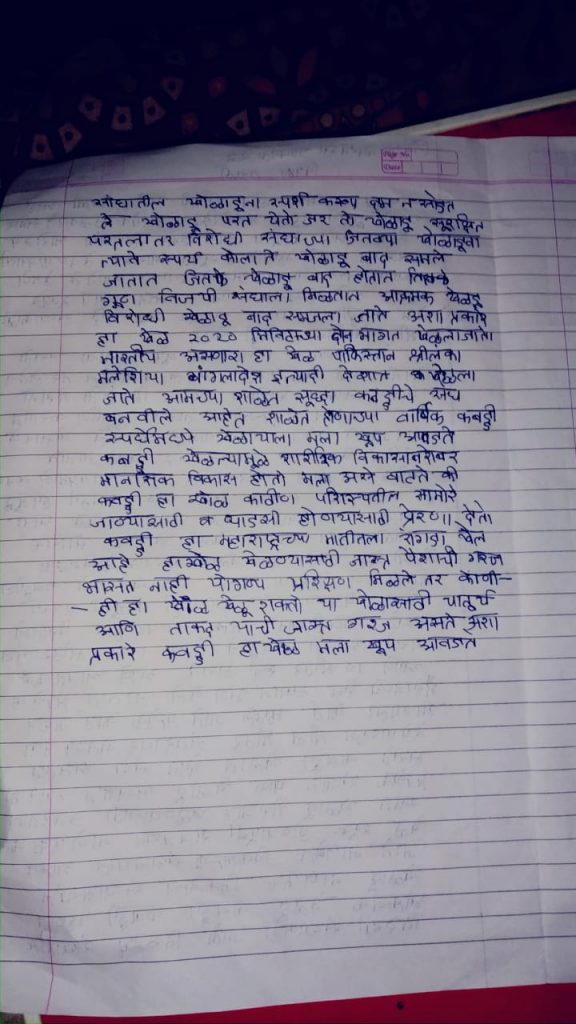 Page No.
Date
संघातील खेळाडूना स्पर्श करून दम न सोडत
तो खेळाडू परत येतो जर तो खेळाडू सूरक्षित
परतला तर विरोधी संघाच्या जितक्या खेळाडूंना
त्याने स्पर्श केला ते खेळाडू बाद समजले
जातात जितके खेळाडू बाद होतात तितके
गूण विजयी संघाला मिळतात आक्रमक खेळाडू
विरोधी खेळाडू बाद समजला जातो अशा प्रकारे
हा खेळ 2020 मिनिटाच्या दोन भागात खेळला जातो
भारतीय असणारा हा खेळ पाकिस्तान श्रीलंका
मलेशिया बांगलादेश इत्यादी देशात खेळला
जातो आमच्या शाळेत सूद्धा कबड्डीचे संघ
बनवीले आहेत शाळेत होणाऱ्या वार्षिक कबड्डी
स्पर्धेमध्ये खेळायाला मला खूप आवडते
कबड्डी खेळल्यामूळे शारीरिक विकासाबरोबर
मानसिक विकास होतो मला असे वाटते की
कबड्डी हा खेळ कठीण परिस्थितीत सामोरे
जाण्यासाठी व धाडसी होण्यासाठी प्रेरणा देतो
कबड्डी हा महाराष्ट्राच्या मातीतला रांगडा खेळ
आहे हा खेळ खेळण्यासाठी जास्त पैशाची गरज
भासत नाही योग्य प्रशिक्षण मिळले तर कोणी-
-ही हा खेळ खेळू शकतो या खेळासाठी चातूर्य
आणि ताकद याची जास्त गरज असते अशा
प्रकारे कबड्डी हा खेळ मला खूप आवडत